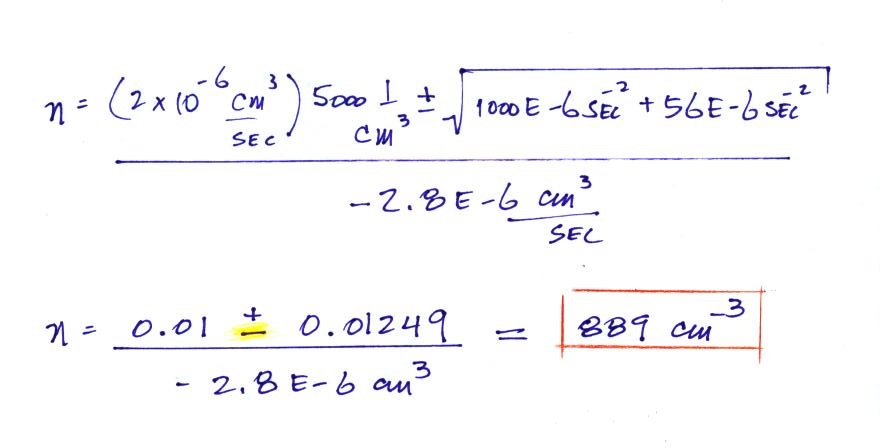 n = (2 x 10⁻⁶ cm³/SEC) 5000 1/cm³ ± √(1000E-6 SEC⁻² + 56E-6 SEC⁻²)
-2.8E-6 cm³/SEC
n = 0.01 ± 0.01249 = 889 cm⁻³
-2.8E-6 cm³